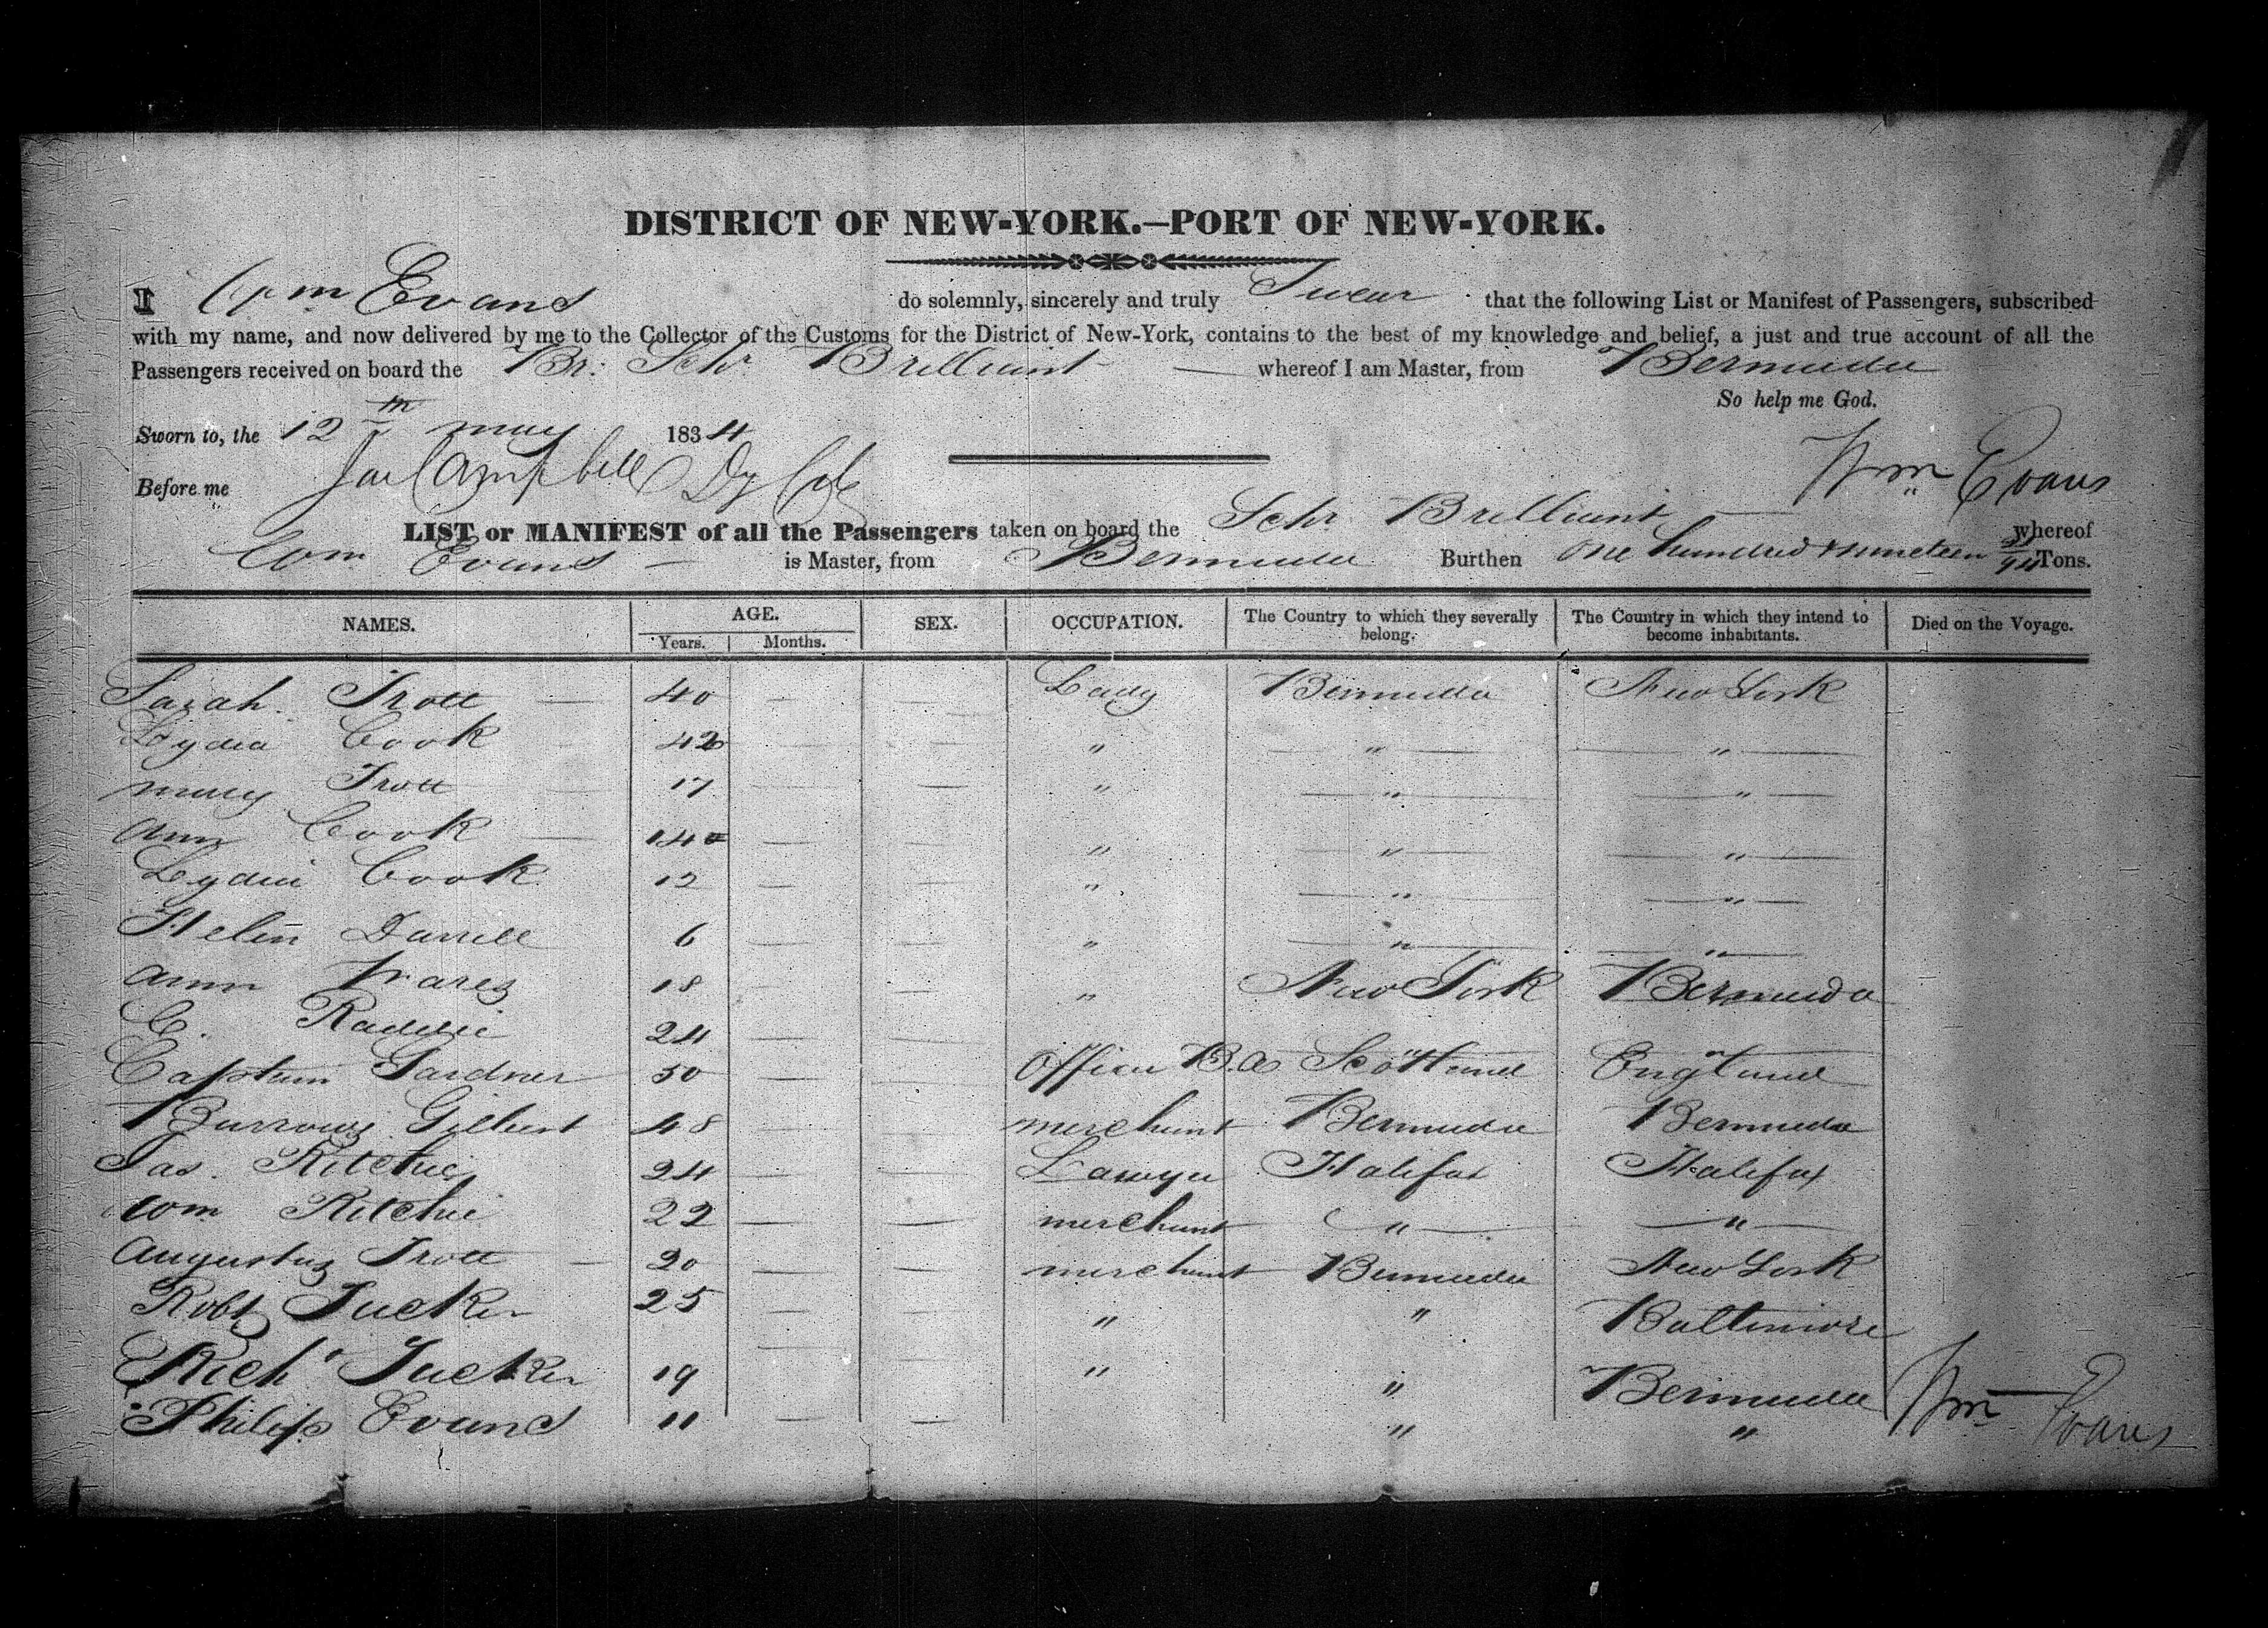 DISTRICT OF NEW-YORK.—PORT OF NEW-YORK.
I Wm Evans do solemnly, sincerely and truly Swear that the following List or Manifest of Passengers, subscribed
with my name, and now delivered by me to the Collector of the Customs for the District of New-York, contains to the best of my knowledge and belief, a just and true account of all the
Passengers received on board the Br. Schr Brilliant — whereof I am Master, from Bermuda
So help me God.
Sworn to, the 12th may 1834
Wm Evans
Before me Jas Campbell Dy Col
LIST or MANIFEST of all the Passengers taken on board the Schr Brilliant — whereof
Wm Evans — is Master, from Bermuda Burthen One hundred & nineteen Tons.
NAMES. AGE. SEX. OCCUPATION. The Country to which they severally belong. The Country in which they intend to become inhabitants. Died on the Voyage.
Years. Months.
Sarah Trott — 40 — Lady Bermuda New York
Lydia Cook 42 — — " — " — — " —
mary Trott 17 — — " — " — — " —
Ann Cook — 14 — — " — " — — " —
Lydia Cook 12 — — " — " — — " —
Helen Darrell 6 — — " — " — — " —
Ann 18 — — " New York Bermuda
C. 24 — — " "
Captain Gardner 50 — — Officer B.A Scotland England
Burrows Gilbert 48 — — merchant Bermuda Bermuda
Jas. Ritchie 24 — — Lawyer Halifax Halifax
Wm Ritchie 22 — — merchant " — — " —
Augustus Trott — 20 — — merchant Bermuda New York
Robt Tucker 25 — — " " Baltimore
Richd Tucker 19 — — " " Bermuda
Philip Evans 11 — — " "
Wm Evans